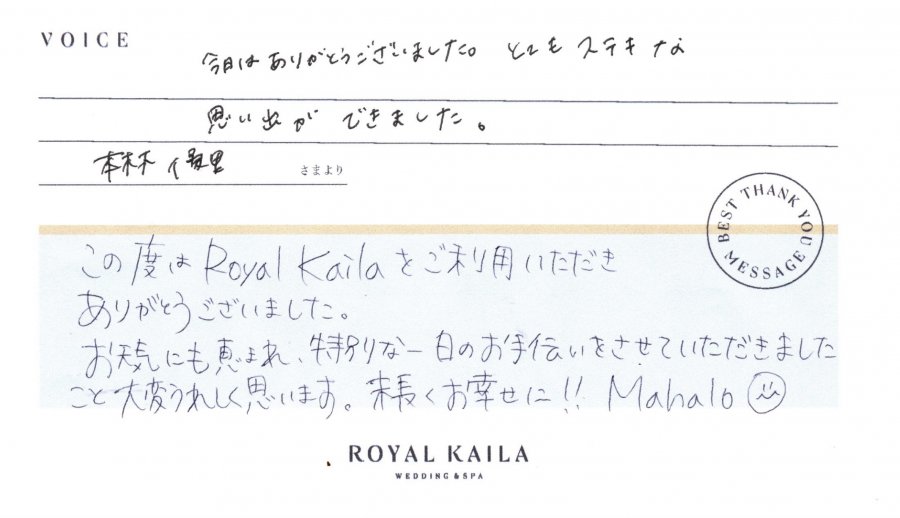 VOICE
今日はありがとうございました。とてもステキな
思い出ができました。
さまより
BEST THANK YOU MESSAGE
この度はRoyal Kailaをご利用いただき
ありがとうございました。
お天気にも恵まれ、特別な一日のお手伝いをさせていただきました
こと大変うれしく思います。末長くお幸せに!! Mahalo
ROYAL KAILA
WEDDING & SPA